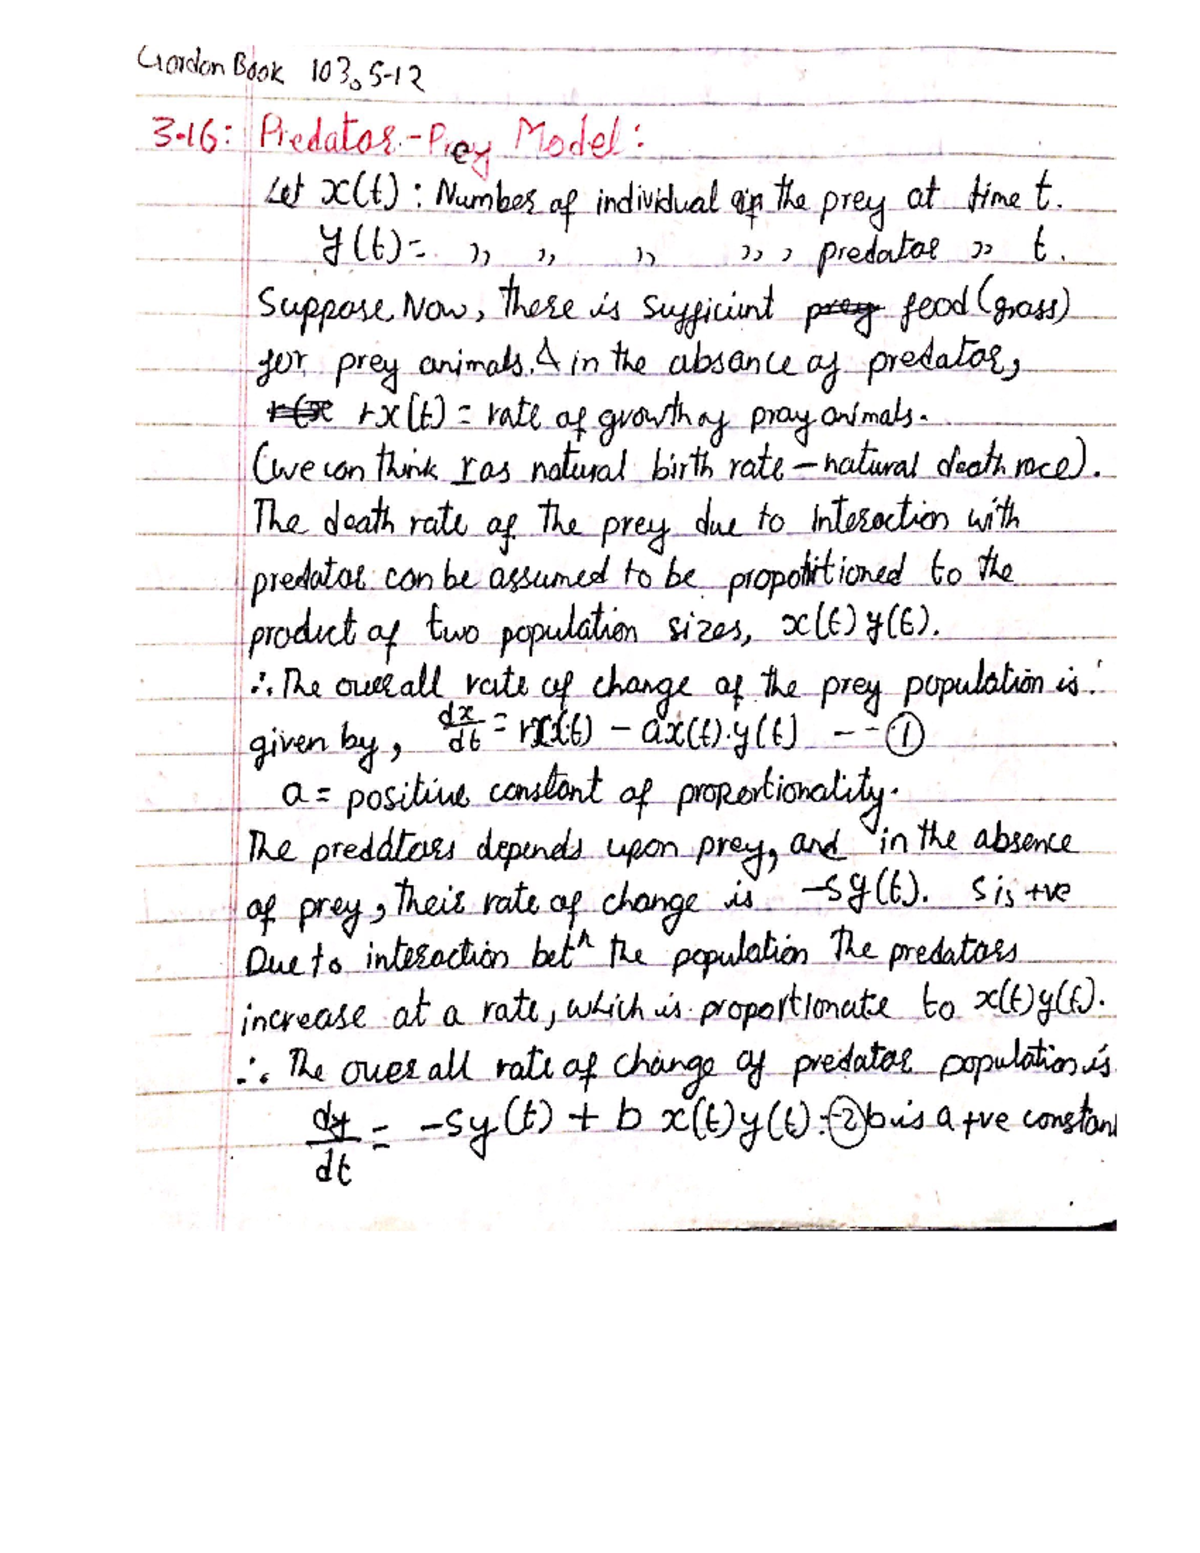 Gordon Book 103, 5-12
3.16: Predator-Prey Model:
Let x(t) : Number of individual in the prey at time t.
y(t) = ,, ,, ,, ,, , predator ,, t.
Suppose, Now, there is sufficient prey food (grass)
for prey animals. & in the absance of predator,
r(x rx(t) = rate of growth of pray animals.
(we can think r as natural birth rate - natural death race).
The death rate of the prey due to interaction with
predator can be assumed to be propotitioned to the
product of two population sizes, x(t) y(t).
∴ The overall rate of change of the prey population is
given by, dx/dt = rx(t) - ax(t).y(t) --- ①
a = positive constant of proportionality.
The predators depends upon prey, and in the absence
of prey, their rate of change is -sy(t). s is +ve
Due to interaction betn the population the predators
increase at a rate, which is proportionate to x(t)y(t).
∴ The over all rate of change of predator population is
dy/dt = -sy(t) + b x(t)y(t) - ② b is a +ve constan